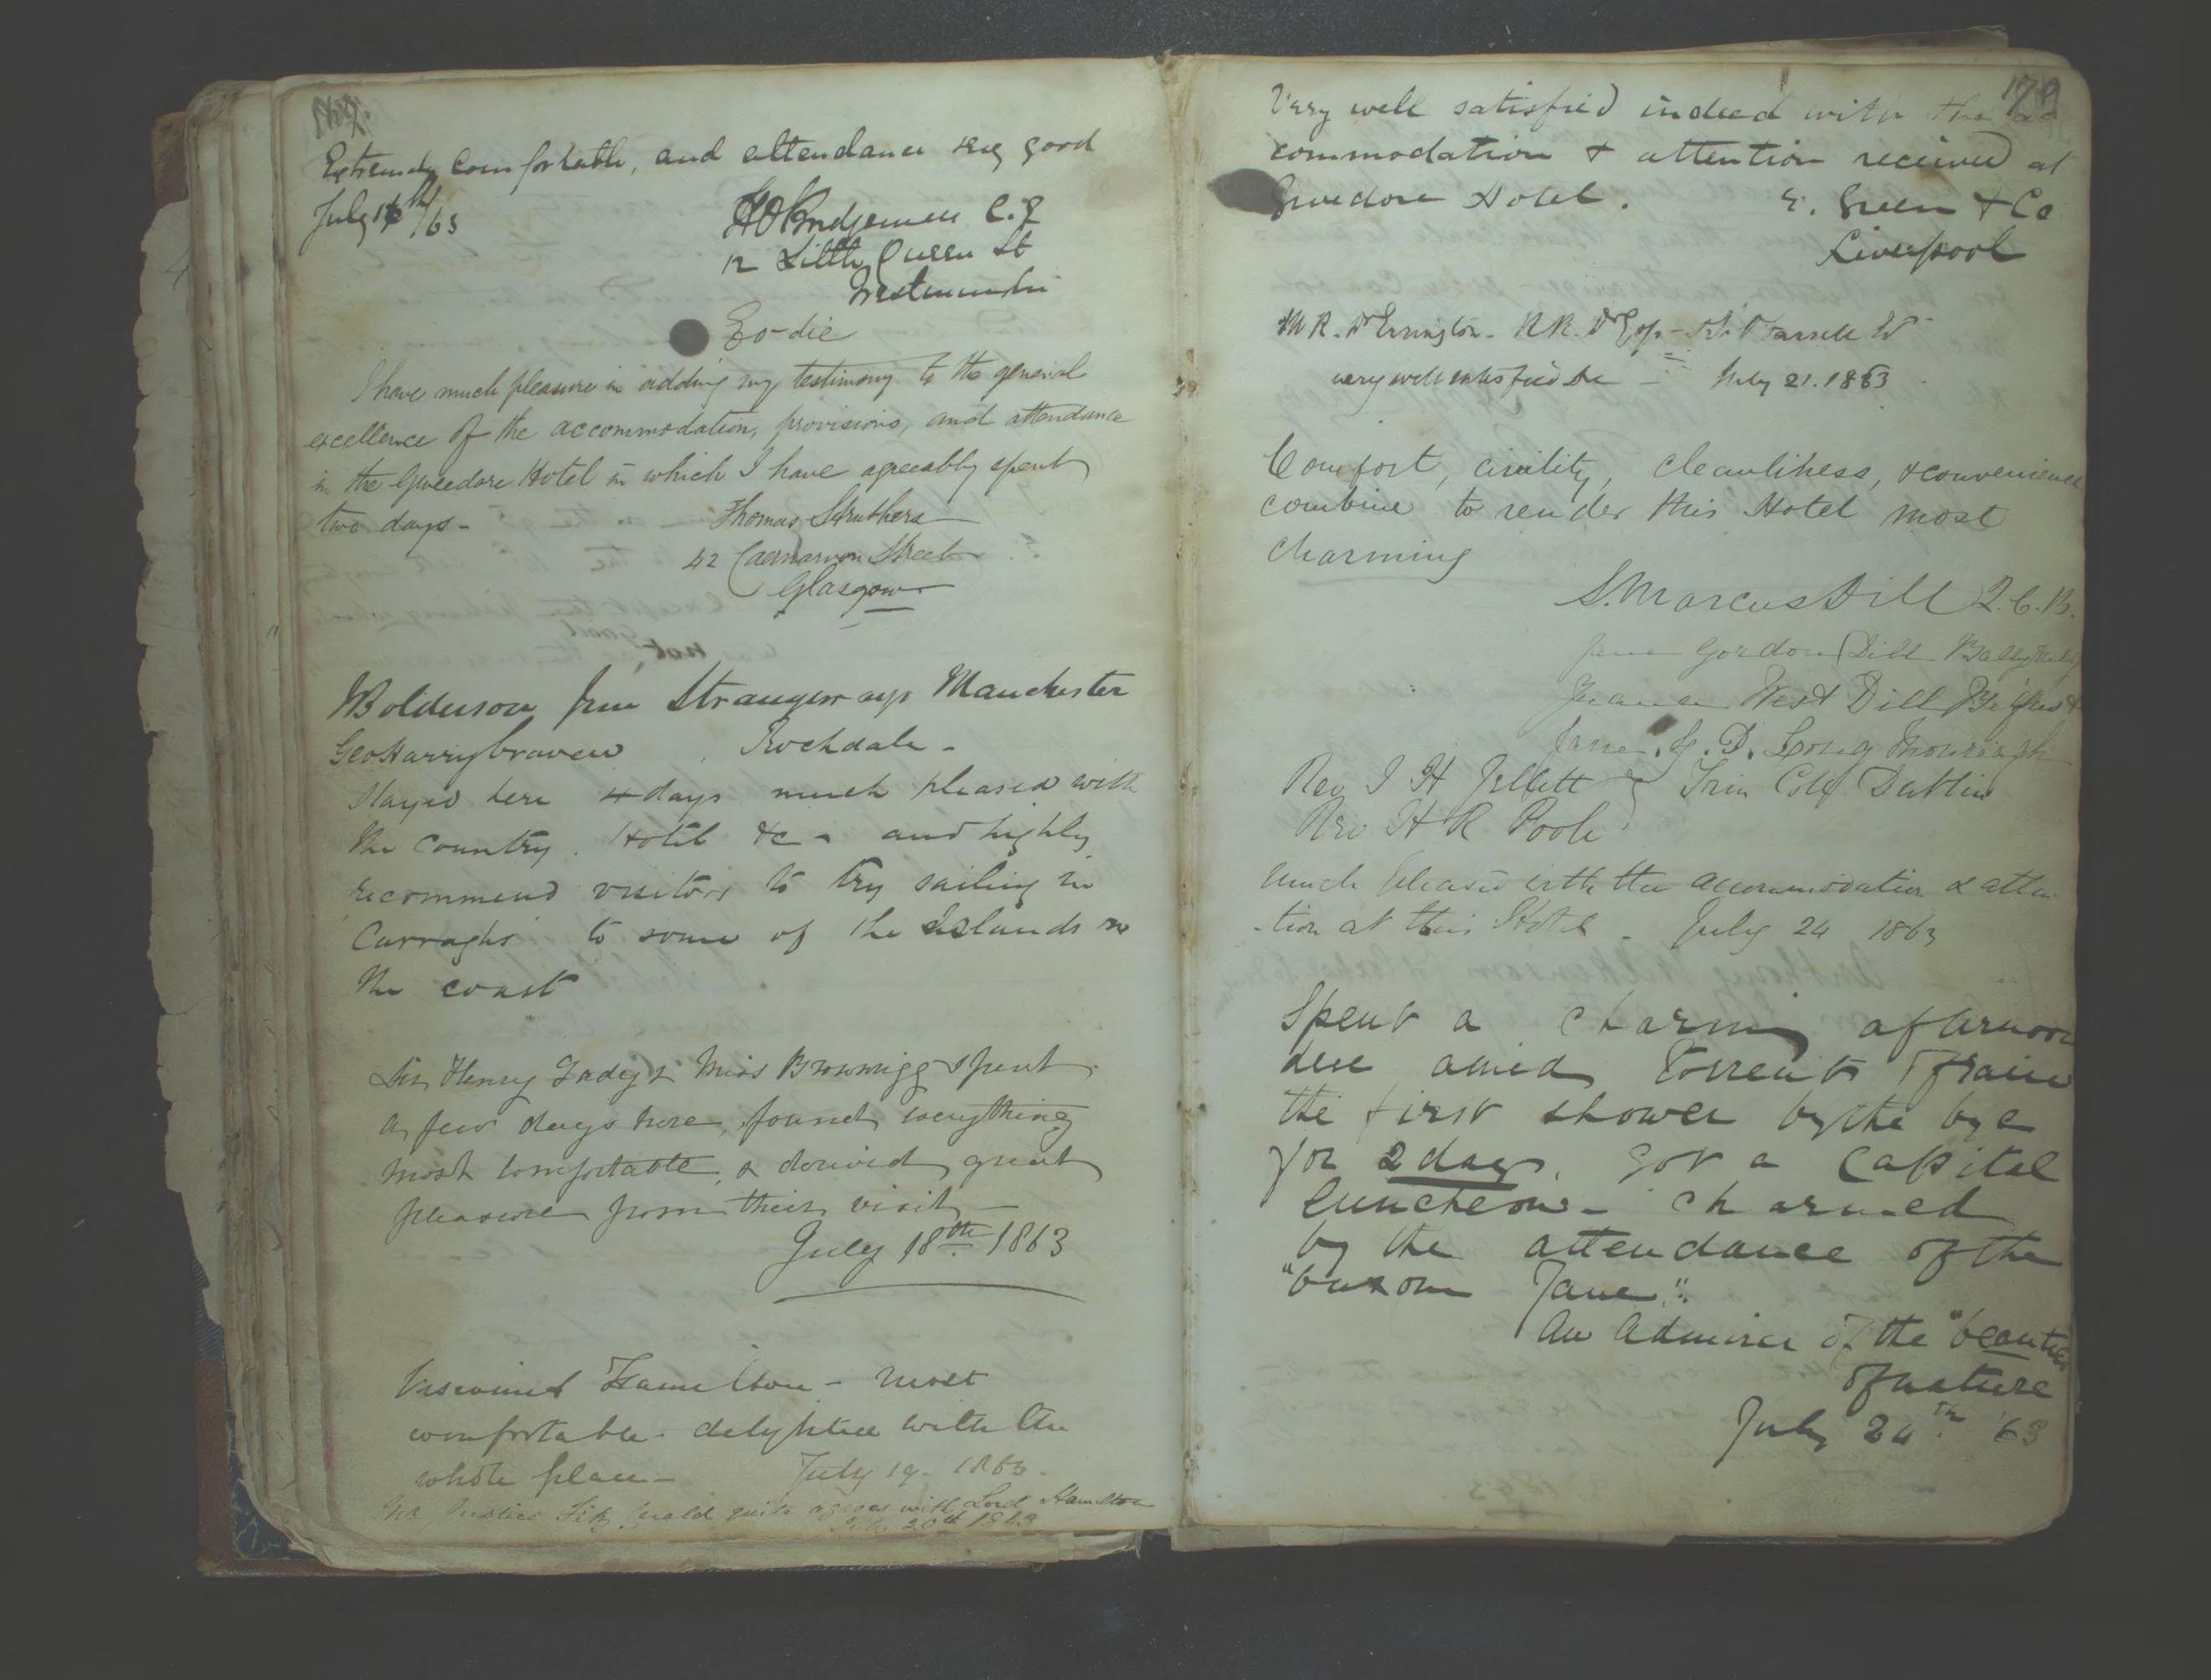 169.
Extremely comfortable, and attendance very good
July 16th/63
12 Little Queen St
Westminster
Eo-die
I have much pleasure in adding my testimony to the general
excellence of the accommodation, provisions, and attendance
in the Gweedore Hotel in which I have agreeably spent
two days - Thomas Struthers
42 Caernarvon Street
Glasgow
Bolderson Jun Strangeways Manchester
Geo Harry Craven Rochdale -
Stayed here 4 days much pleased with
the country. Hotel &c - and highly
recommend visitors to try sailing in
Curraghs to some of the Islands on
the coast
Sir Henry Lady & Miss Brownrigg spent
a few days here, found everything
most comfortable, & derived great
pleasure from their visit -
July 18th 1863
Viscount Hamilton - most
comfortable - delighted with the
whole place - July 19 - 1863.
Mr Justice Fitzgerald quite agrees with Lord Hamilton
July 20th 1863
170
Very well satisfied indeed with the ac
commodation & attention received at
Gweedore Hotel. E. Green & Co
Liverpool
very well satisfied - July 21. 1863
Comfort, civility, cleanliness, & convenience
combine to render this Hotel most
charming
S. Marcus Dill
Jane Gordon Dill
West Dill Belfast
Rev J H Jellett } Trin Coll Dublin
Rev H R Poole
Much pleased with the accommodation & atten
-tion at this Hotel - July 24 1863
Spent a charming afternoon
here amid torrents of rain
the first shower by the bye
for 2 days. got a capital
luncheon - charmed
by the attendance of the
"buxom Jane".
An Admirer of the "beauties
of nature
July 24th '63